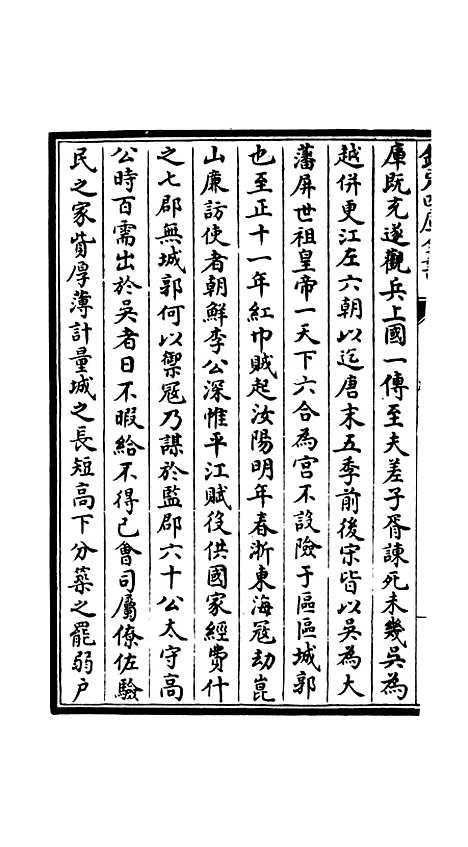 庫既充遂觀兵上國一傳至夫差子胥諫死未幾吳為
越併更江左六朝以迄唐末五季前後宋皆以吳為大
藩屏世祖皇帝一天下六合為宮不設險于區區城郭
也至正十一年紅巾賊起汝陽明年春浙東海冦劫崑
山廉訪使者朝鮮李公深惟平江賦役供國家經費什
之七郡無城郭何以禦冦乃謀於監郡六十公太守高
公時百需出於吳者日不暇給不得已會司屬僚佐驗
民之家貲厚薄計量城之長短高下分築之罷弱户